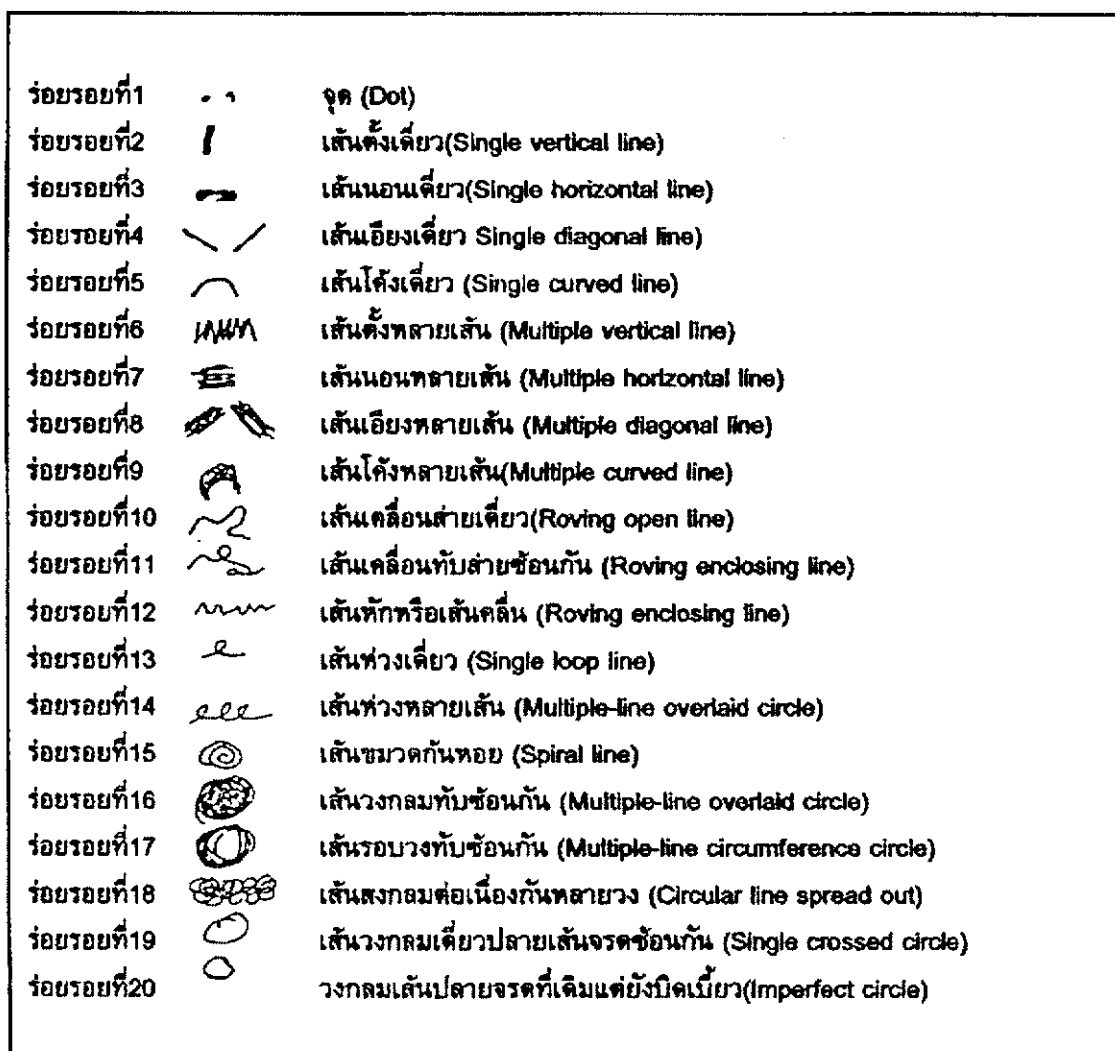 ร่อยรอยที่1 จุด (Dot)
ร่อยรอยที่2 เส้นตั้งเดี่ยว(Single vertical line)
ร่อยรอยที่3 เส้นนอนเดี่ยว(Single horizontal line)
ร่อยรอยที่4 เส้นเอียงเดี่ยว Single diagonal line)
ร่อยรอยที่5 เส้นโค้งเดี่ยว (Single curved line)
ร่อยรอยที่6 เส้นตั้งหลายเส้น (Multiple vertical line)
ร่อยรอยที่7 เส้นนอนหลายเส้น (Multiple horizontal line)
ร่อยรอยที่8 เส้นเอียงหลายเส้น (Multiple diagonal line)
ร่อยรอยที่9 เส้นโค้งหลายเส้น(Multiple curved line)
ร่อยรอยที่10 เส้นเคลื่อนส่ายเดี่ยว(Roving open line)
ร่อยรอยที่11 เส้นเคลื่อนทับส่ายซ้อนกัน (Roving enclosing line)
ร่อยรอยที่12 เส้นหักหรือเส้นคลื่น (Roving enclosing line)
ร่อยรอยที่13 เส้นห่วงเดี่ยว (Single loop line)
ร่อยรอยที่14 เส้นห่วงหลายเส้น (Multiple-line overlaid circle)
ร่อยรอยที่15 เส้นขมวดก้นหอย (Spiral line)
ร่อยรอยที่16 เส้นวงกลมทับซ้อนกัน (Multiple-line overlaid circle)
ร่อยรอยที่17 เส้นรอบวงทับซ้อนกัน (Multiple-line circumference circle)
ร่อยรอยที่18 เส้นลงกลมต่อเนื่องกันหลายวง (Circular line spread out)
ร่อยรอยที่19 เส้นวงกลมเดี่ยวปลายเส้นจรดซ้อนกัน (Single crossed circle)
ร่อยรอยที่20 วงกลมเส้นปลายจรดที่เดิมแต่ยังบิดเบี้ยว(Imperfect circle)